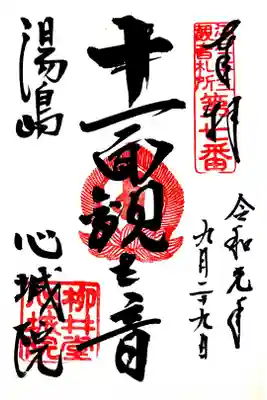 奉拝
江戸三十三
観音札所
第七番
令和元年
九月二十九日
十一面観世音
湯島
心城院
柳井堂
心城院